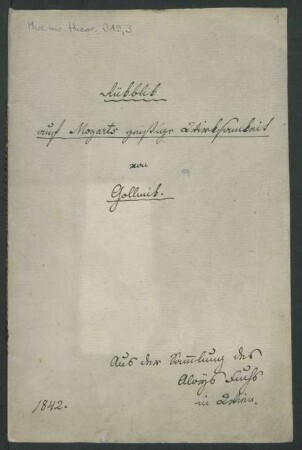 Mus. ms. theor. 319,3
1
Rükblik
auf Mozarts geistige Wirksamkeit
von
Gollmik.
Aus der Sammlung des
Aloys Fuchs
in Wien.
1842.